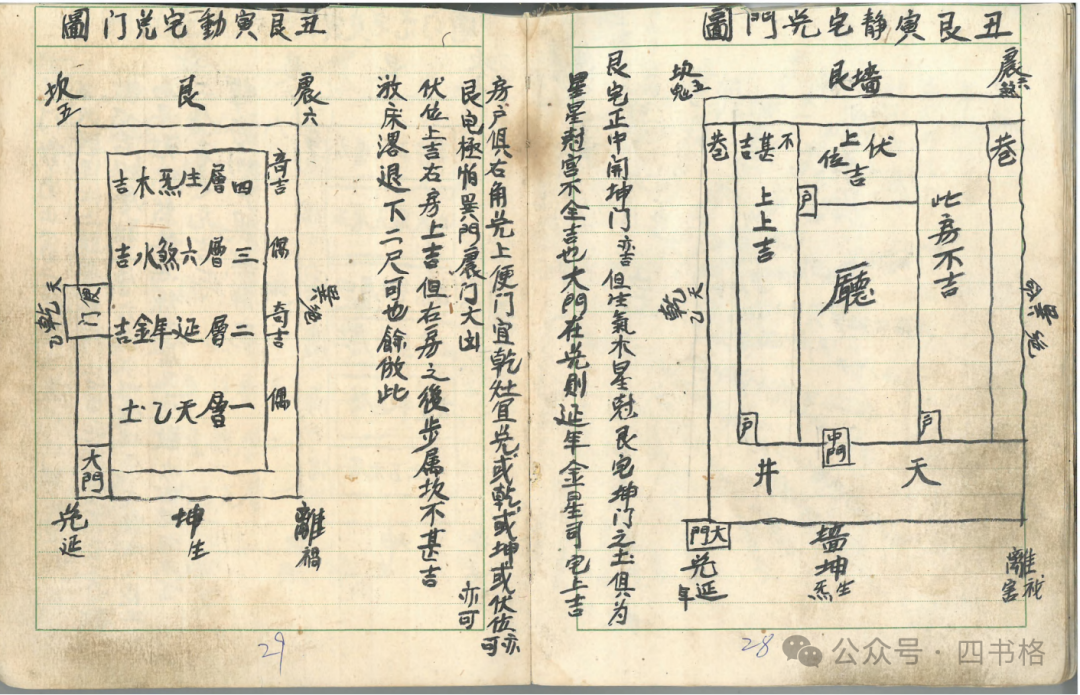 丑艮寅靜宅兊門圖
艮墻
震六煞
坎五鬼
巷
伏位上吉
不甚吉
巷
此房不吉
上上吉
戶
廳
巽絕
乾天乙
戶
中門
戶
天井
大門
兊延年
墻坤生炁
離禍害
艮宅正中開坤門亦吉但生氣木星尅艮宅坤門之土俱为
星星尅宫不全吉也大門在兊則延年金星司宅上吉
28
丑艮寅動宅兊门圖
震六
艮
坎五
奇吉
四層生炁木吉
偶
三層六煞水吉
奇吉
二層延年金吉
偶
一層天乙土
巽絕
乾天乙
便门
大門
離禍
坤生
兊延
房户俱右角兊上便门宜乾灶宜兊或乾或坤或伏位亦可
艮宅極怕巽門震门大凶
亦可
伏位上吉右房上吉但右房之後步属坎不甚吉
放床畧退下二尺可也餘倣此
29
公众号·四书格